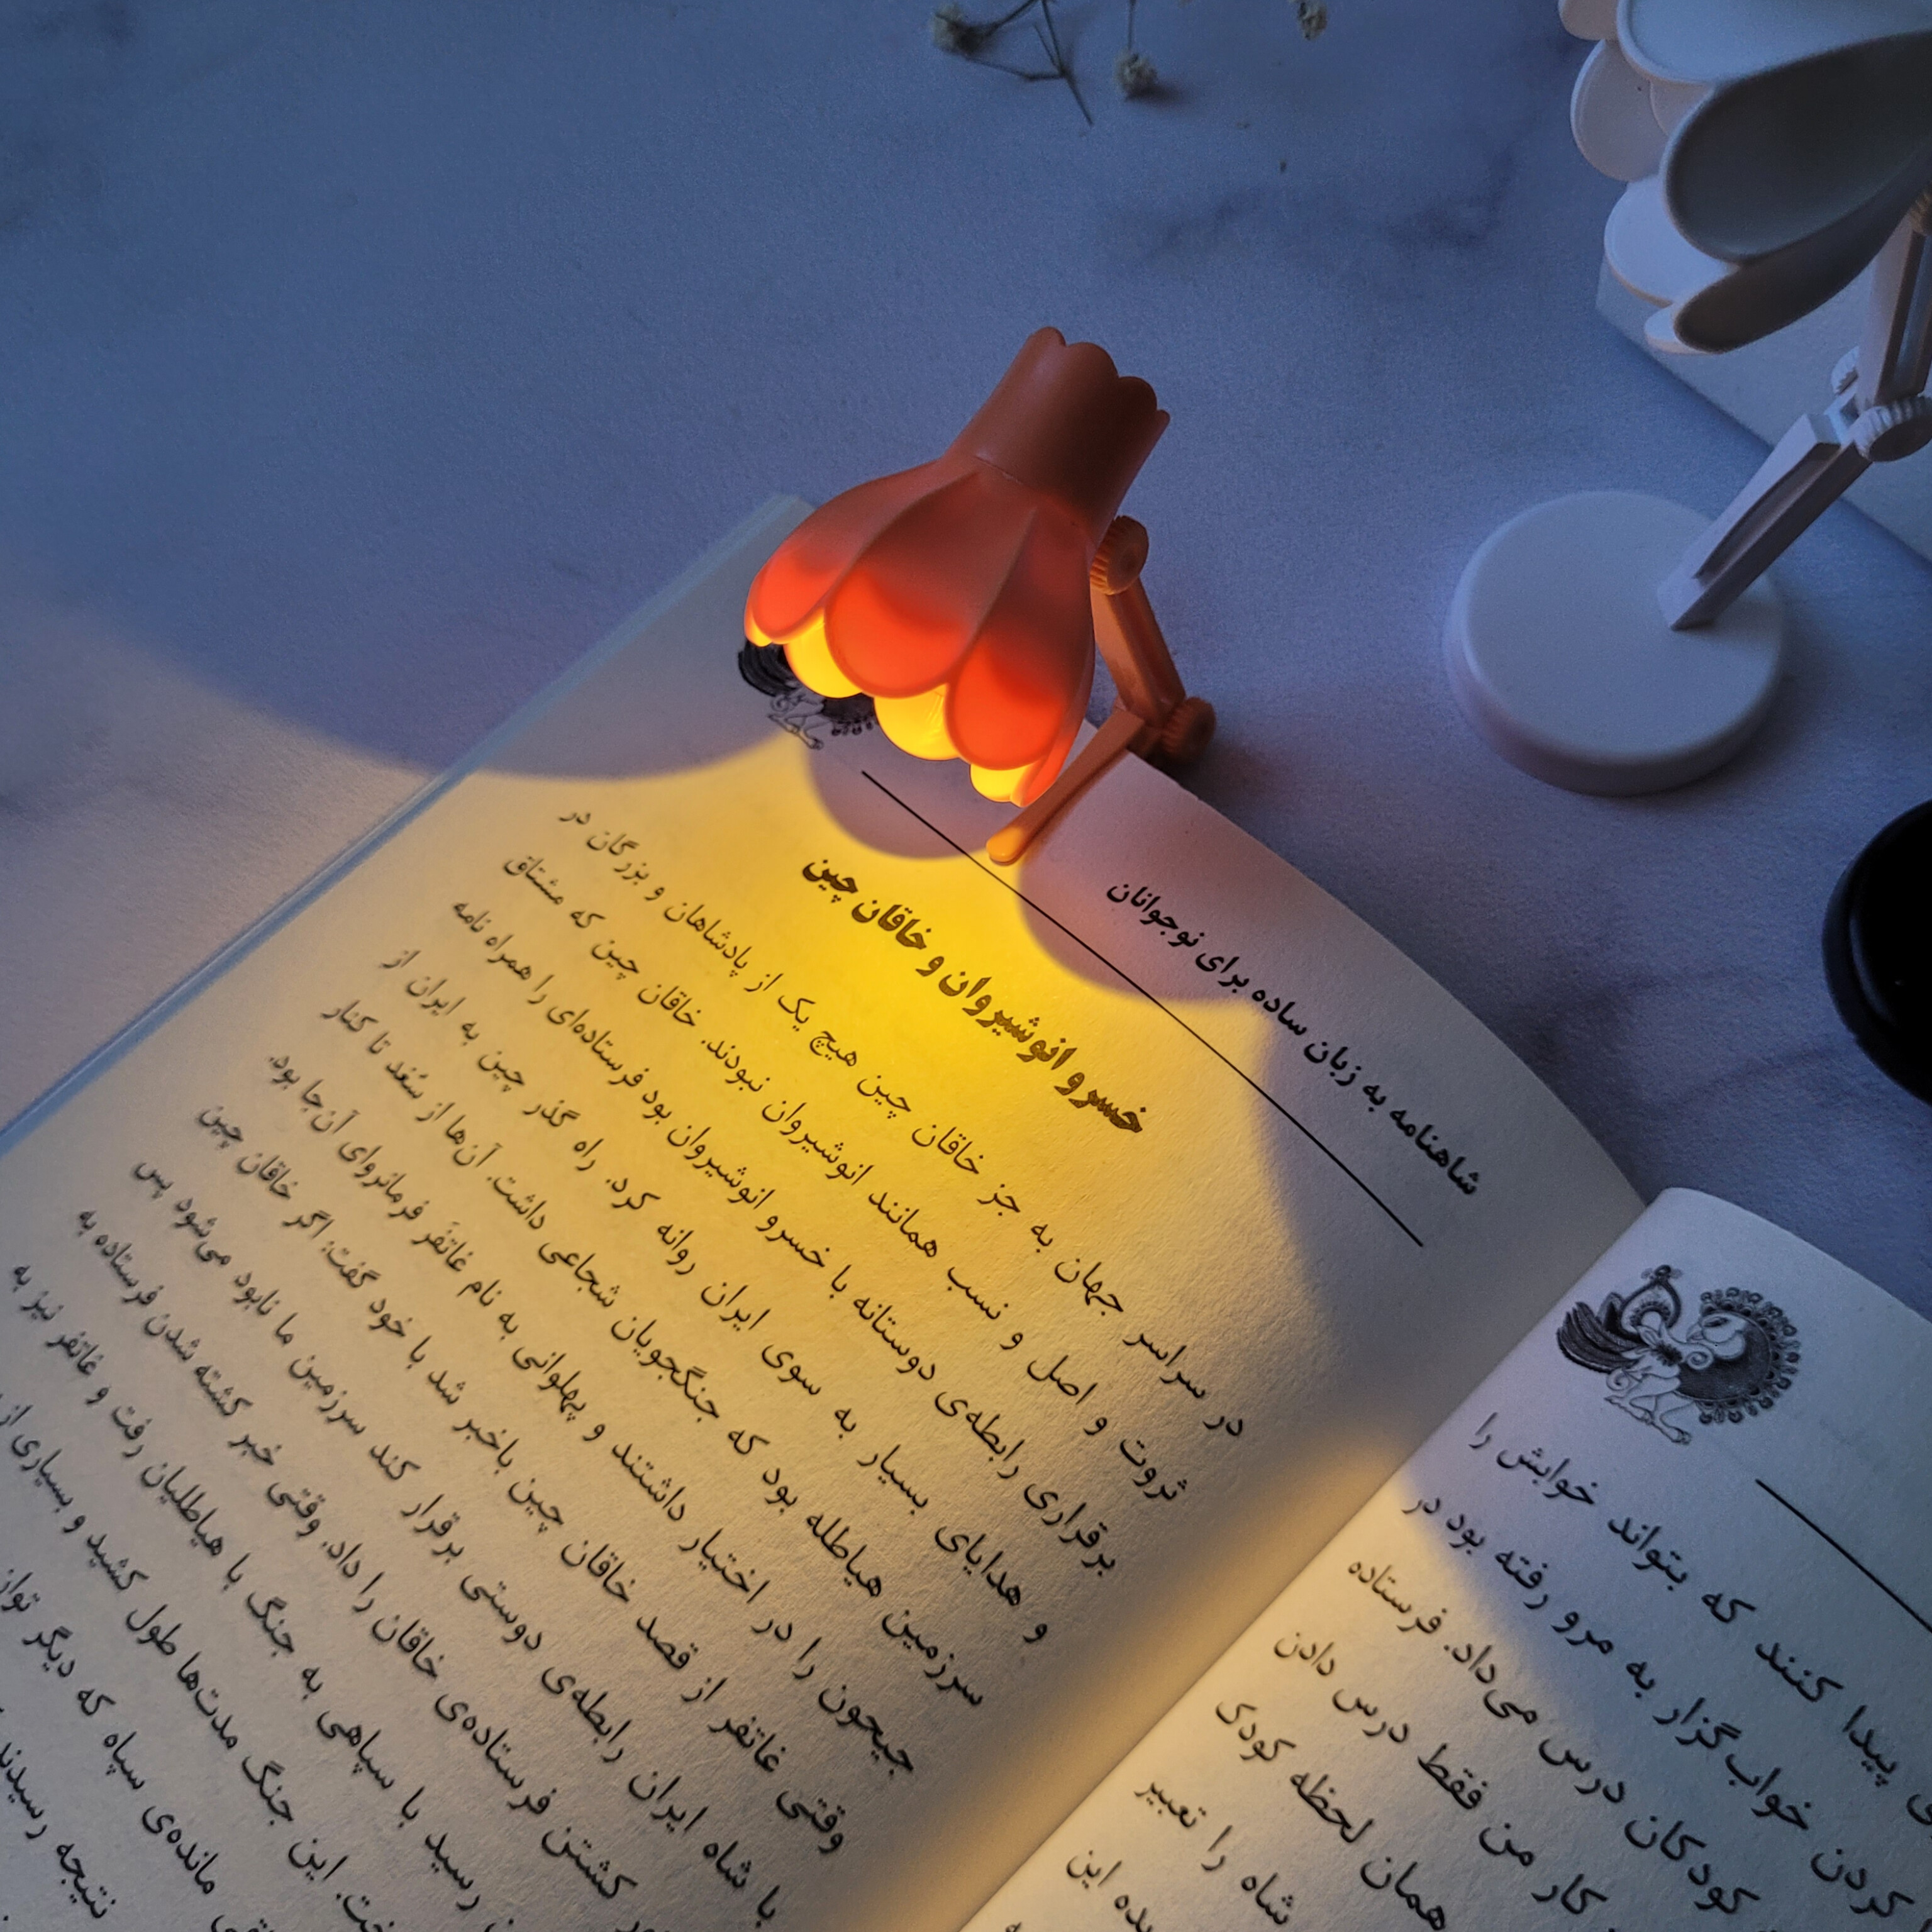 پیدا کنند که بتواند خوابش را
کردن خواب‌گزار به مرو رفته بود در
کودکان درس می‌داد. فرستاده
کار من فقط درس دادن
همان لحظه کودک
شاه را تعبیر
این
شاهنامه به زبان ساده برای نوجوانان
خسرو انوشیروان و خاقان چین
در سراسر جهان به جز خاقان چین هیچ یک از پادشاهان و بزرگان در
ثروت و اصل و نسب همانند انوشیروان نبودند. خاقان چین که مشتاق
برقراری رابطه‌ی دوستانه با خسرو انوشیروان بود فرستاده‌ای را همراه نامه
و هدایای بسیار به سوی ایران روانه کرد. راه گذر چین به ایران از
سرزمین هیاطله بود که جنگجویان شجاعی داشت. آن‌ها از سُغد تا کنار
جیحون را در اختیار داشتند و پهلوانی به نام غاتفَر فرمانروای آن‌جا بود.
وقتی غاتفر از قصد خاقان چین باخبر شد با خود گفت: اگر خاقان چین
با شاه ایران رابطه‌ی دوستی برقرار کند سرزمین ما نابود می‌شود پس
کشتن فرستاده‌ی خاقان را داد. وقتی خبر کشته شدن فرستاده به
رسید با سپاهی به جنگ با هیاطلیان رفت و غاتفر نیز به
این جنگ مدت‌ها طول کشید و بسیاری از
مانده‌ی سپاه که دیگر
نتیجه رسیدند